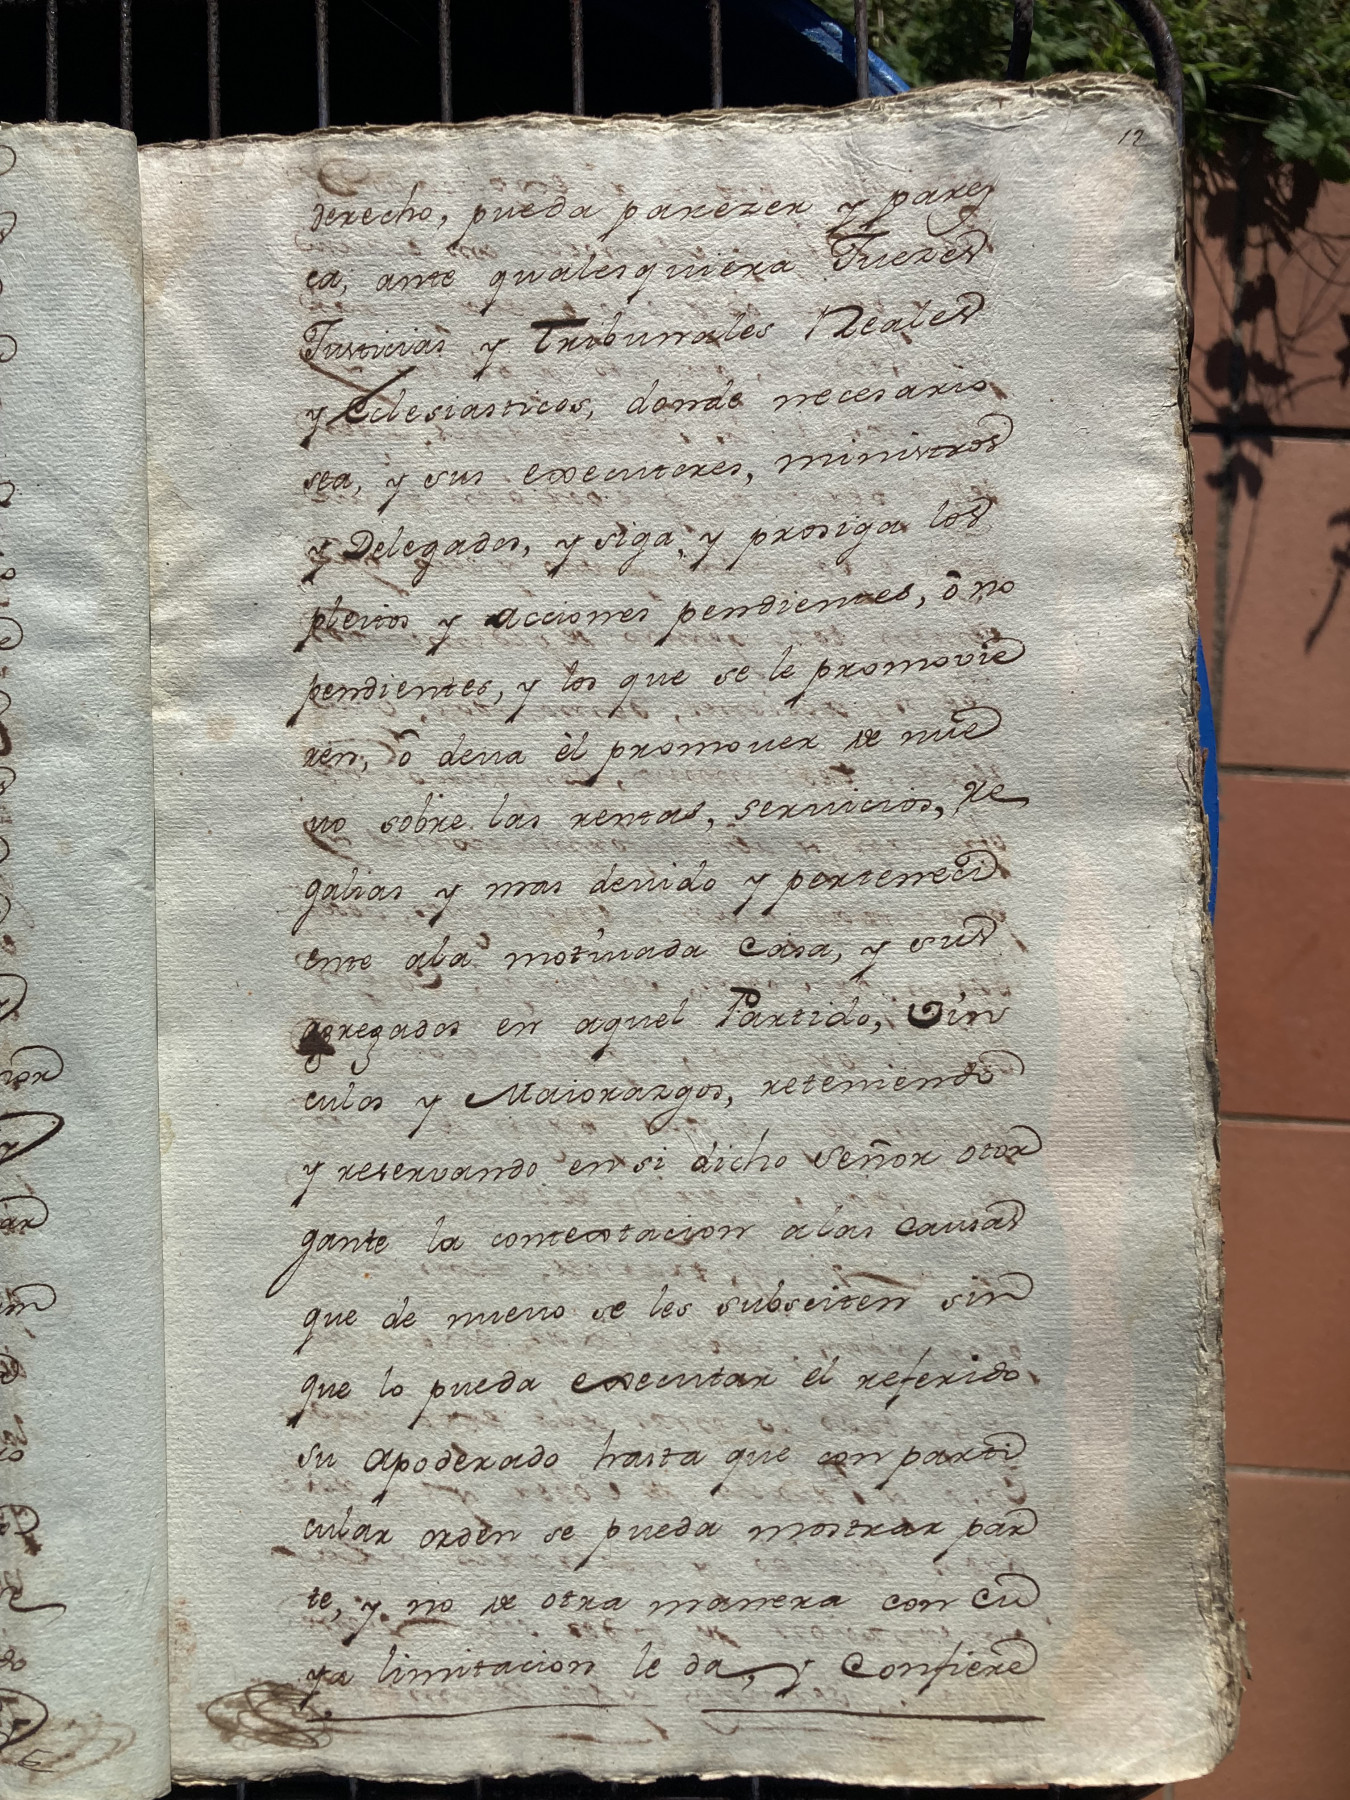 12
derecho, pueda parezer y parez
ca, ante qualesquiera Juezes
Justicias y Tribunales Reales
y Eclesiasticos, donde necesario
sea, y sus executores, ministros
y Delegados, y siga, y prosiga los
pleitos y acciones pendientes, ô no
pendientes, y los que se le promovie
ren, ô deva èl promover de nue
vo sobre las rentas, servicios, re
galias y mas devido y perteneci
ente ala motivada Casa, y sus
agregados en aquel Partido, Vin
culos y Maiorazgos, reteniendo
y reservando en si dicho señor otor
gante la contextacion alas causas
que de nuevo se les subsciten sin
que lo pueda executar èl referido
su apoderado hasta que con parti
cular orden se pueda mostrar par
te, y no de otra manera con cu
ya limitacion le da, y Confiere